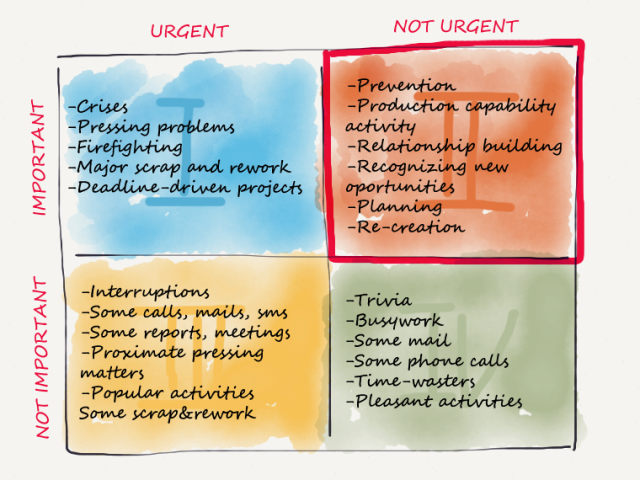 URGENT
NOT URGENT
IMPORTANT
I
-Crises
-Pressing problems
-Firefighting
-Major scrap and rework
-Deadline-driven projects
II
-Prevention
-Production capability
activity
-Relationship building
-Recognizing new
oportunities
-Planning
-Re-creation
NOT IMPORTANT
III
-Interruptions
-Some calls, mails, sms
-Some reports, meetings
-Proximate pressing
matters
-Popular activities
Some scrap&rework
IV
-Trivia
-Busywork
-Some mail
-Some phone calls
-Time-wasters
-Pleasant activities